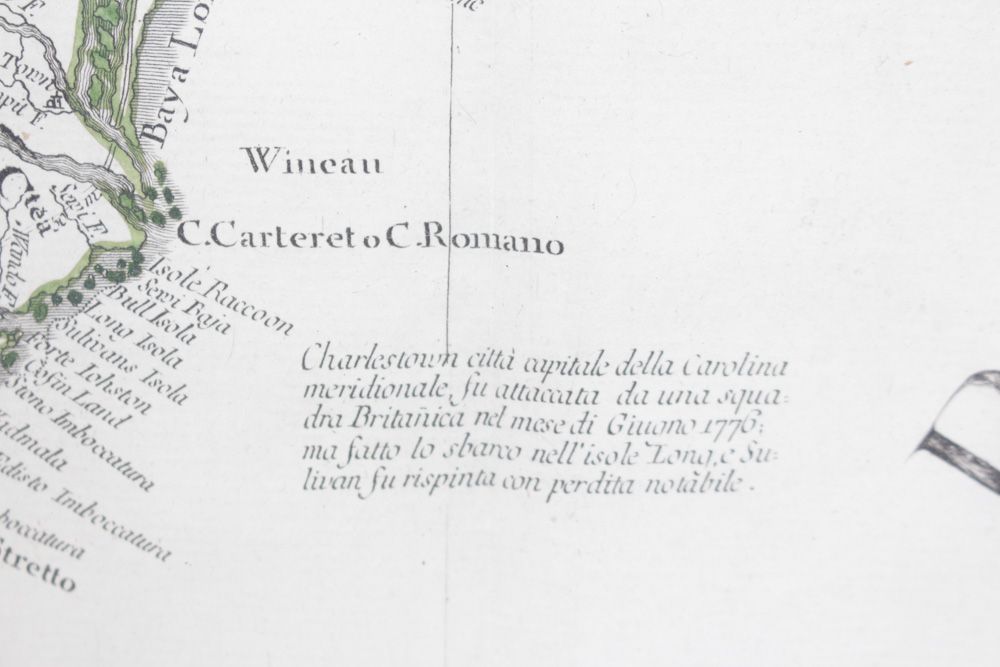 F.
Baya Lon
Town
F.
Wineau
Sewi F.
C.Carteret o C.Romano
Wando F.
Isole Raccoon
Sewi Baja
Bull Isola
Long Isola
Sulivans Isola
Forte Iohston
Cofin Land
Stono Imboccatura
Kidmala
Edisto Imboccatura
boccatura
Stretto
Charlestown città capitale della Carolina
meridionale, fu attaccata da una squa=
dra Britañica nel mese di Giuono 1776;
ma fatto lo sbarco nell'isole Long, e Su=
livan fu rispinta con perdita notàbile.